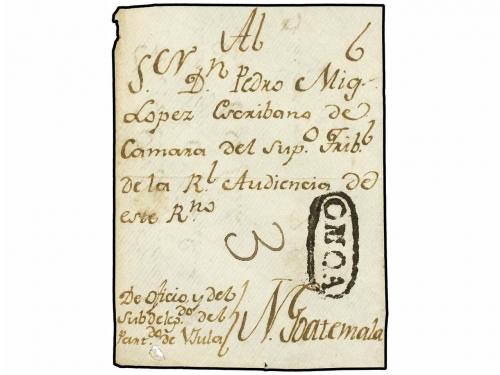 Al 6
S.or D.n Pedro Mig.l
Lopez Escribano de
Camara del Sup.o Trib.l
de la R.l Audiencia de
este R.no
3
CHQA
De Oficio y del
Subdeleg.do del
Part.do de
N. Goatemala